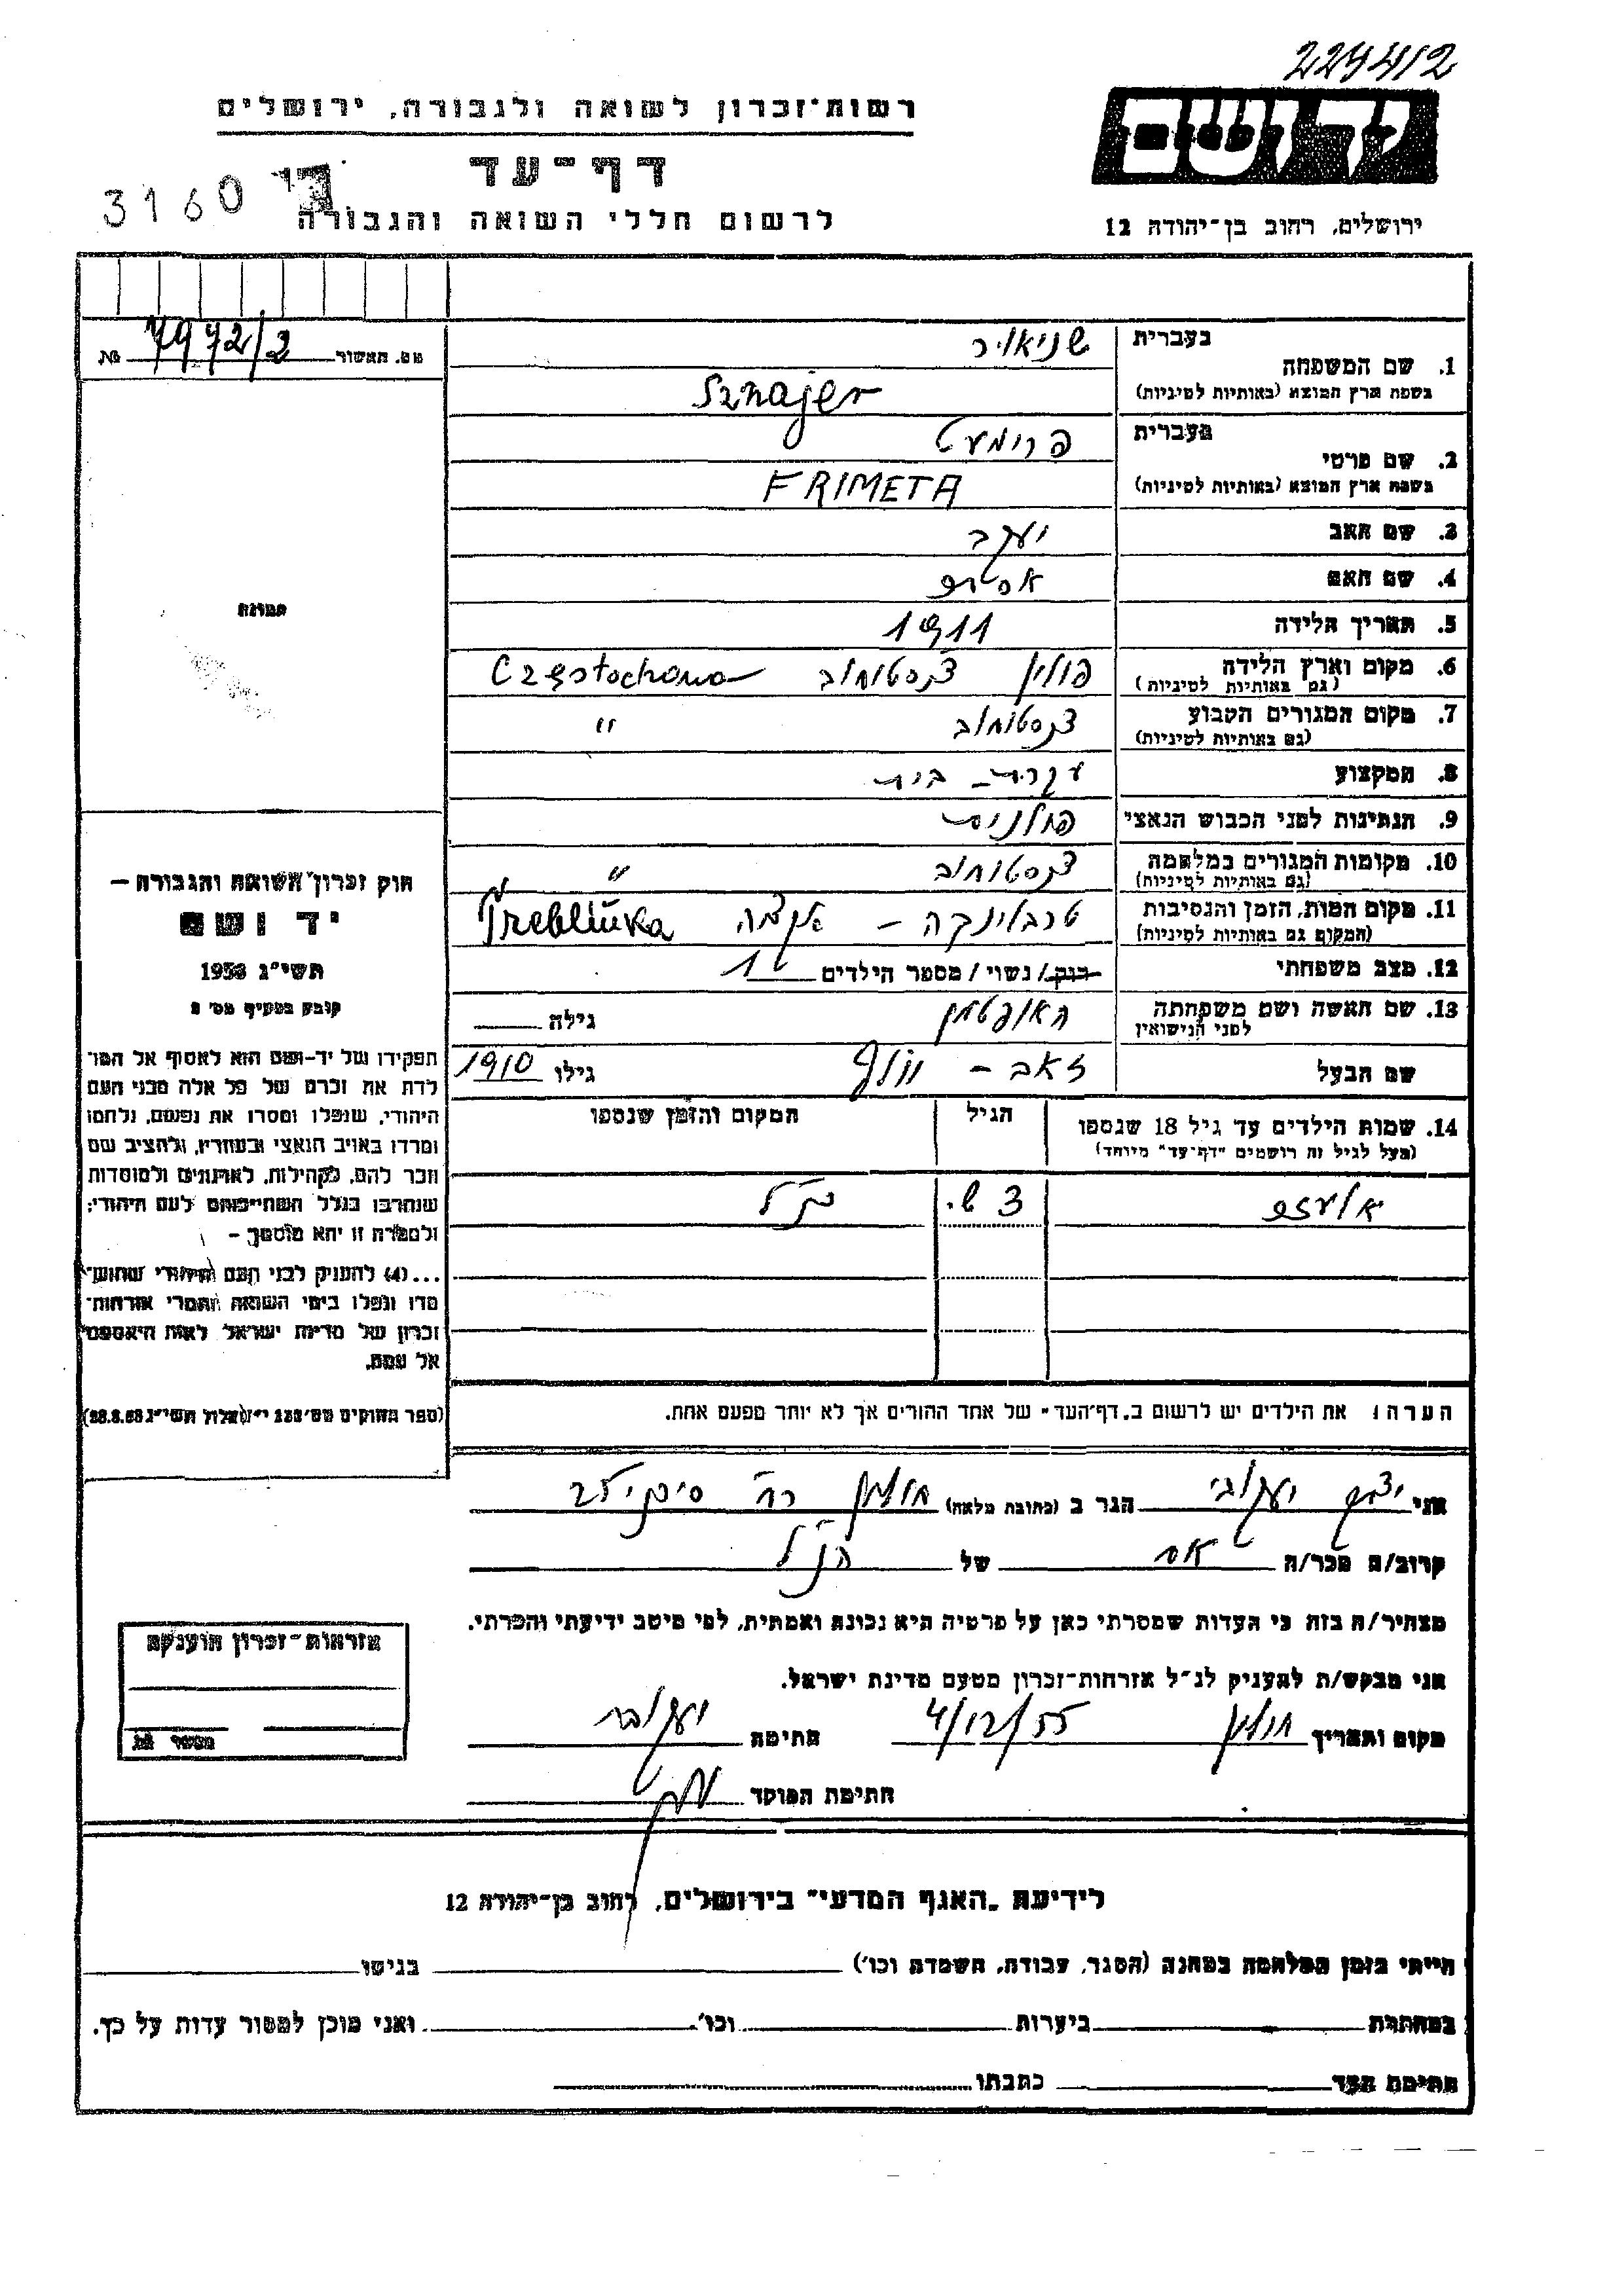 229412
רשות־זכרון לשואה ולגבורה, ירושלים
יד ושם
דף־עד
3160
לרשום חללי השואה והגבורה
ירושלים, רחוב בן־יהודה 12
מס. האשור 7972/2 №
בעברית
שניאידר
1. שם המשפחה
בשפת ארץ המוצא (באותיות לטיניות) Sznajer
בעברית פרימעט
2. שם פרטי
בשפת ארץ המוצא (באותיות לטיניות) FRIMETA
3. שם האב יעקב
4. שם האם אסתר
5. תאריך הלידה 1911
6. מקום וארץ הלידה פולין צ'נסטוחוב Częstochowa
(גם באותיות לטיניות)
7. מקום המגורים הקבוע צ'נסטוחוב "
(גם באותיות לטיניות)
8. המקצוע עקרת-בית
9. הנתינות לפני הכבוש הנאצי פולנית
10. מקומות המגורים במלחמה צ'נסטוחוב "
(גם באותיות לטיניות)
11. מקום המות, הזמן והנסיבות טרבלינקה - Treblinka
(המקום גם באותיות לטיניות)
12. מצב משפחתי רווק/נשוי/מספר הילדים 1
13. שם האשה ושם משפחתה
לפני הנישואין
גילה
שם הבעל זאב - וולף גילו 1910
14. שמות הילדים עד גיל 18 שנספו הגיל המקום והזמן שנספו
(מעל לגיל זה רושמים "דף־עד" מיוחד)
3 ש. כנ"ל
הערה: את הילדים יש לרשום ב"דף־העד" של אחד ההורים אך לא יותר מפעם אחת.
תמונה
חוק זכרון השואה והגבורה —
יד ושם
תשי"ג 1953
קובע בסעיף מס' 2
תפקידו של יד־ושם הוא לאסוף אל המו־
לדת את זכרם של כל אלה מבני העם
היהודי, שנפלו ומסרו את נפשם, נלחמו
ומרדו באויב הנאצי ובעוזריו, ולהציב שם
וזכר להם, לקהילות, לארגונים ולמוסדות
שנחרבו בגלל השתייכותם לעם היהודי;
ולמטרה זו יהא מוסמך, —
...(4) להעניק לבני העם היהודי שהוש־
מדו ונפלו בימי השואה והמרי אזרחות־
זכרון של מדינת ישראל לאות היאספם
אל עמם.
(ספר החוקים מס' 132 י"ז אלול תשי"ג 28.8.53)
אני יצחק יעקובי הגר ב (כתובת מלאה) חולון רח'
קרוב/ה מכר/ה אח של הנ"ל
מצהיר/ה בזה כי העדות שמסרתי כאן על פרטיה היא נכונה ואמתית, לפי מיטב ידיעתי והכרתי.
אני מבקש/ת להעניק לנ"ל אזרחות־זכרון מטעם מדינת ישראל.
מקום ותאריך חולון 4/12/55 חתימה יעקובי
חתימת הפוקד
אזרחות־זכרון הוענקה
מספר №
לידיעת "האגף המדעי" בירושלים, רחוב בן־יהודה 12
הייתי בזמן המלחמה במחנה (הסגר, עבודה, השמדה וכו') בגיטו
במחתרת ביערות וכו'. ואני מוכן למסור עדות על כך.
חתימת העד כתבתו